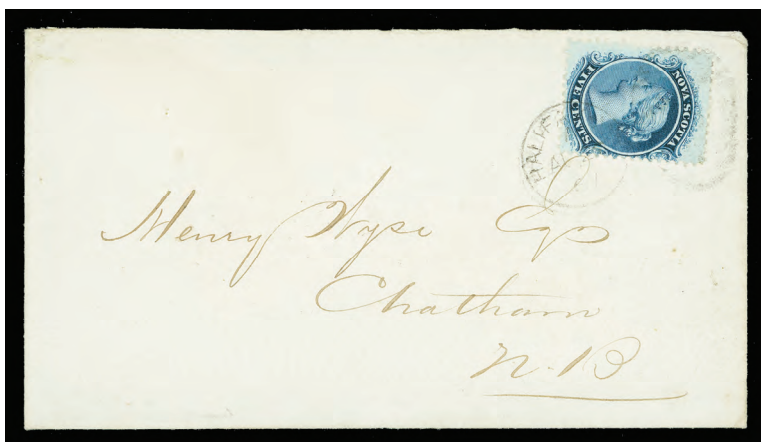 NOVA SCOTIA
FIVE CENTS
Henry Wyse Esq
Chatham
N.B